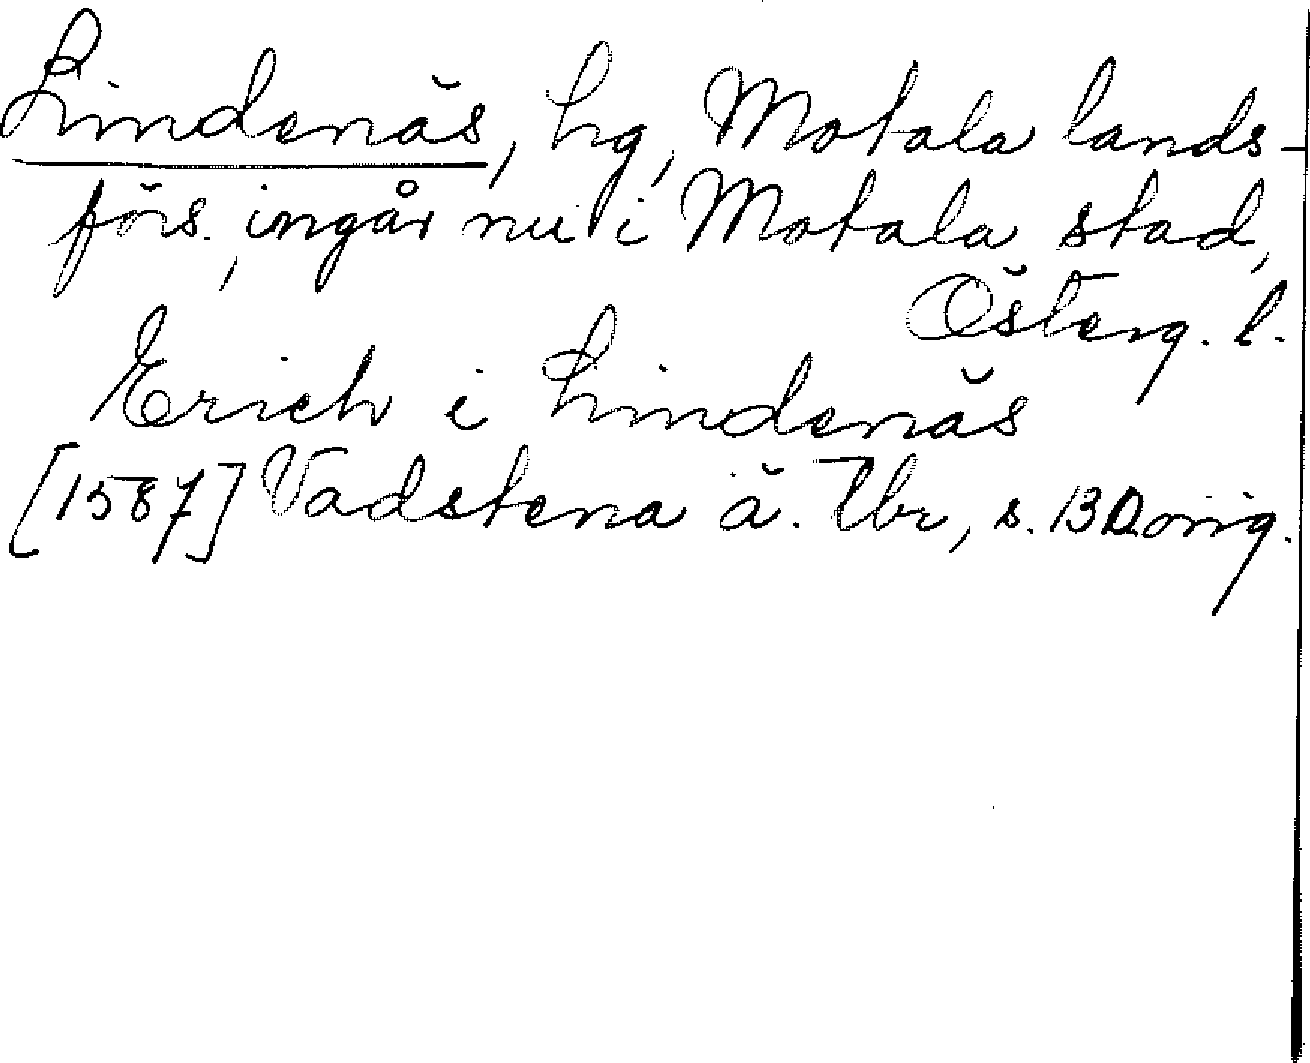 Lindenäs, hg, Motala lands-
förs., ingår nu i Motala stad,
Österg. l.
Erich i Lindenäs
[1587] Vadstena ä. Tbr, s. 13 D. orig.